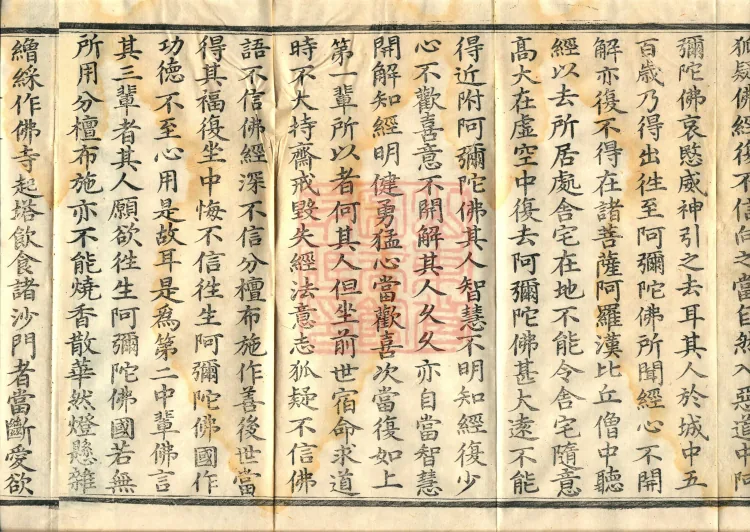 狐疑佛經復不信向之當自然入惡道中阿
彌陀佛哀愍威神引之去耳其人於城中五
百歲乃得出徃至阿彌陀佛所聞經心不開
解亦復不得在諸菩薩阿羅漢比丘僧中聽
經以去所居處舍宅在地不能令舍宅隨意
高大在虛空中復去阿彌陀佛甚大遠不能
得近附阿彌陀佛其人智慧不明知經復少
心不歡喜意不開解其人久久亦自當智慧
開解知經明健勇猛心當歡喜次當復如上
第一輩所以者何其人但坐前世宿命求道
時不大持齋戒毀失經法意志狐疑不信佛
語不信佛經深不信分檀布施作善後世當
得其福復坐中悔不信徃生阿彌陀佛國作
功德不至心用是故耳是為第二中輩佛言
其三輩者其人願欲徃生阿彌陀佛國若無
所用分檀布施亦不能燒香散華然燈懸雜
繒綵作佛寺起塔飲食諸沙門者當斷愛欲